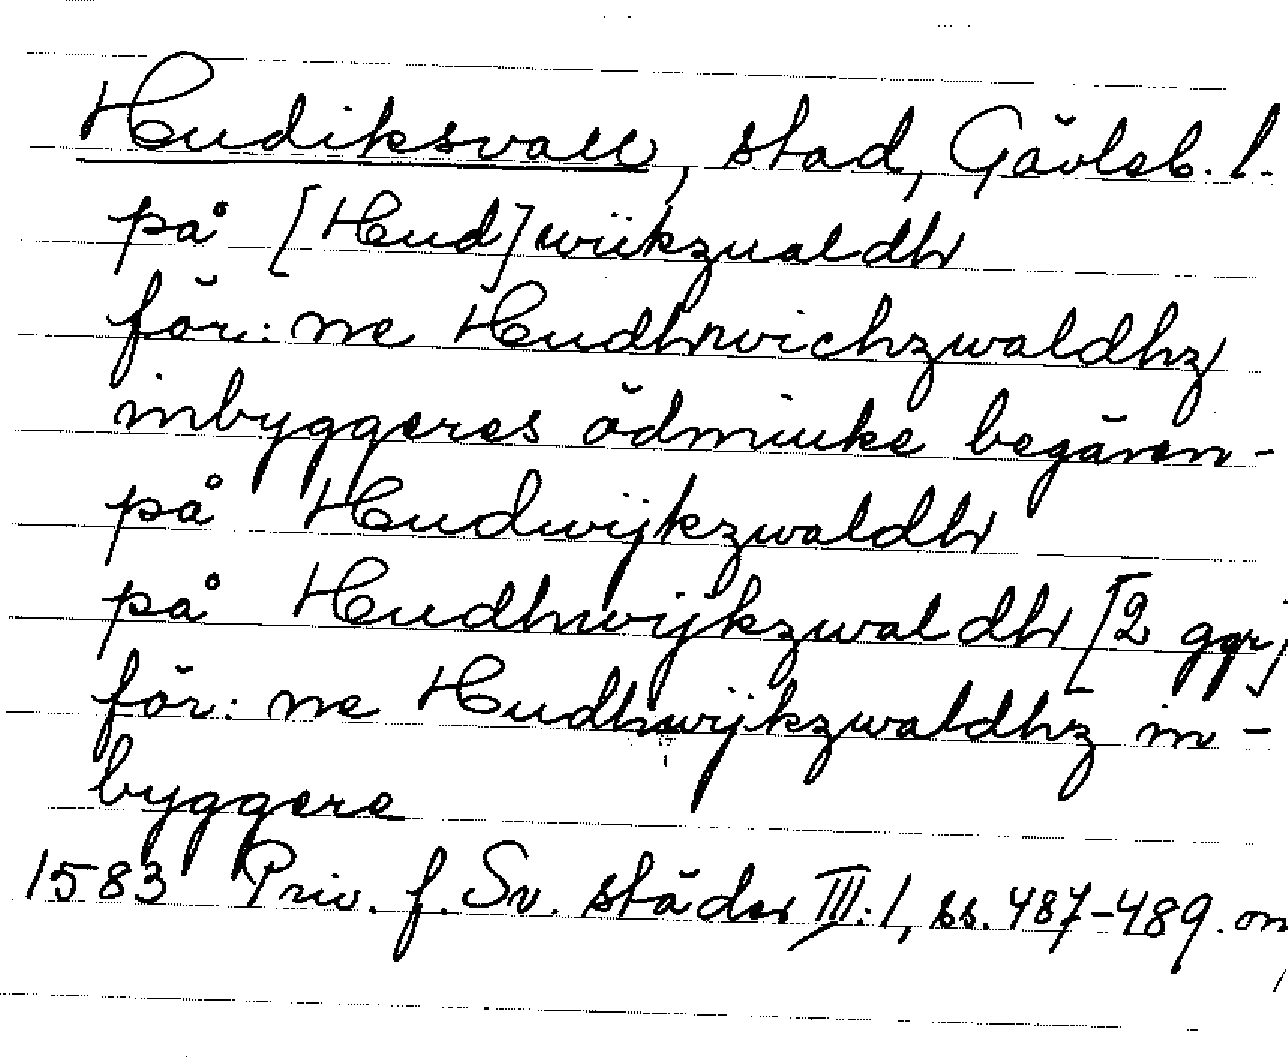 Hudiksvall, stad, Gävleb. l.
på [Hud]wiikzualdh
för: ne Hudhwichzwaldhz
inbyggeres ödmiuke begären-
på Hudwijkzwaldh
på Hudhwijkzwaldh [2 ggr]
för: ne Hudhwijkzwaldhz in-
byggere
1583 Priv. f. Sv. städer III:1, ss. 487-489. om